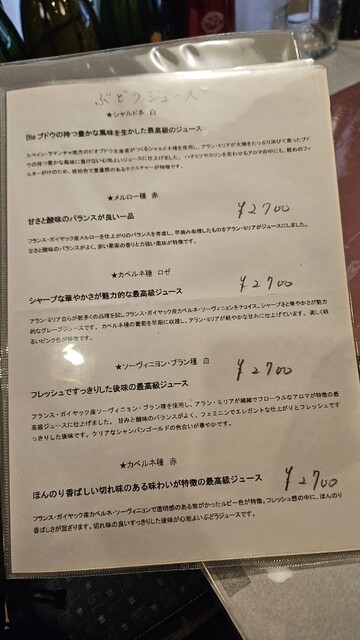 ぶどうジュース
★シャルドネ 白
Bio ブドウの持つ豊かな風味を生かした最高級のジュース
スペイン・ラマンチャ地方のビオブドウ生産者がつくるシャルドネ種を使用し、アラン・ミリアが太陽をたっぷり浴びて育ったブド
ウの持つ豊かな風味に負けない心地よいジュースに仕上げました。 ハチミツやカリンを思わせるアロマの中にも、軽めのフィ
ルターがけのため、琥珀色で重量感のあるテクスチャーが特徴です。
★メルロー種 赤
甘さと酸味のバランスが良い一品
¥2700
フランス・ガイヤック産メルローを仕上がりのバランスを考慮し、早摘み収穫したものをアラン・ミリアがジュースにしました。
甘さと酸味のバランスがよく、赤い果実の香りと力強い風味が特徴です。
★カベルネ種 ロゼ
シャープな華やかさが魅力的な最高級ジュース
¥2700
アラン・ミリア自らが数多くの品種を試しフランス・ガイヤック産カベルネ・ソーヴィニヨンをチョイス。シャープさと華やかさが魅力
的なグレープジュースです。 カベルネ種の葡萄を早期に収穫し、アラン・ミリアが軽やかな甘みに仕上げています。 美しく明
るいピンク色が特徴です。
★ソーヴィニヨン・ブラン種 白
フレッシュですっきりした後味の最高級ジュース
¥2700
フランス・ガイヤック産ソーヴィニヨン・ブラン種を使用し、アラン・ミリアが繊細でフローラルなアロマが特徴の最
高級ジュースに仕上げました。 甘みと酸味のバランスがよく、フェミニンでエレガントな仕上がりとフレッシュです
っきりした後味です。クリアなシャンパンゴールドの色合いが華やかです。
★カベルネ種 赤
ほんのり香ばしい切れ味のある味わいが特徴の最高級ジュース
¥2700
フランス・ガイヤック産カベルネ・ソーヴィニヨンで透明感のある紫がかったルビー色が特徴。フレッシュ感の中に、ほんのり
香ばしさが混ざります。切れ味の良いすっきりした後味が心地よいぶどうジュースです。